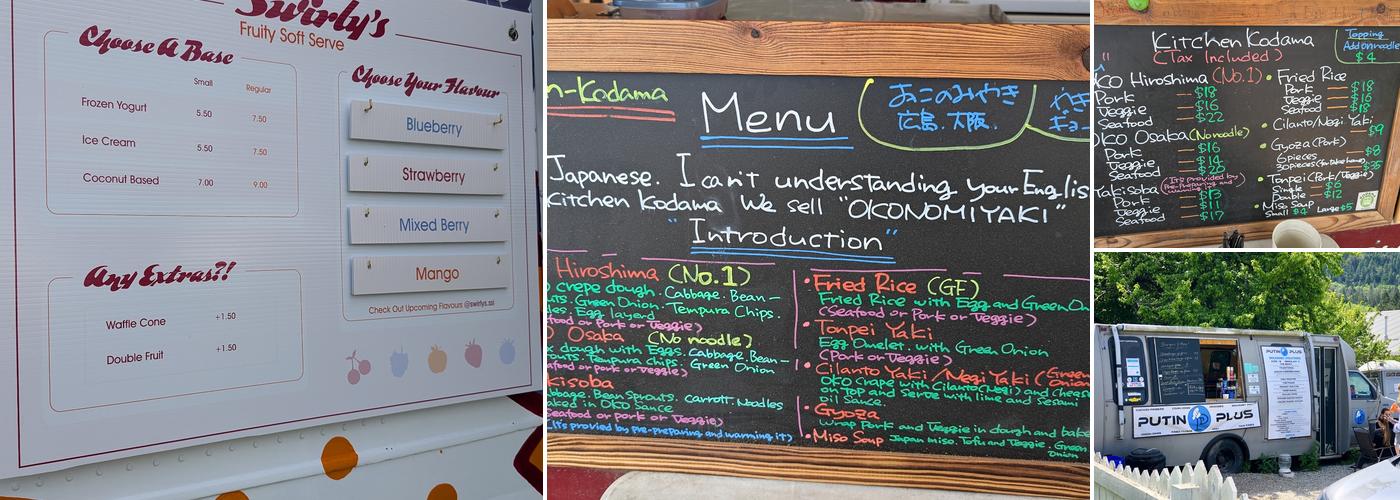 Swirly's
Fruity Soft Serve
Choose A Base
Small Regular
Frozen Yogurt 5.50 7.50
Ice Cream 5.50 7.50
Coconut Based 7.00 9.00
Any Extras?!
Waffle Cone +1.50
Double Fruit +1.50
Choose Your Flavour
Blueberry
Strawberry
Mixed Berry
Mango
Check Out Upcoming Flavours @swirlys.ssi
n-Kodama
Menu
おこのみやき
広島.大阪.
やき
ギョー
Japanese. I can't understanding your Englis
Kitchen Kodama We sell "OKONOMIYAKI"
"Introduction"
Hiroshima (No.1)
crepe dough. Cabbage. Bean-
uts. Green Onion. Tempura Chips.
les. Egg layerd
food or Pork or Veggie)
Osaka (No noodle)
dough with Eggs. Cabbage. Bean-
routs. Tempura chips. Green Onion
afood or pork or veggie)
kisoba
bbage. Bean Sprouts. Carrott. Noodles
aked in OKO Sauce
Seafood or Pork or Veggie)
It's provided by pre-preparing and warming it)
・Fried Rice (GF)
Fried Rice with Egg and Green On
(Seafood or Pork or Veggie)
・Tonpei Yaki
Egg Omelet. with Green Onion
(Pork or Veggie)
・Cilanto Yaki/Negi Yaki (Green Onion
OKO Crape with Cilanto(Negi) and Cheese
on Top and Serve with lime and Sesami
oil Sauce.
・Gyoza
Wrap Pork and Veggie in dough and bake
・Miso Soup Japan miso. Tofu and Veggie. Green
Onion
Kitchen Kodama
(Tax Included)
Topping
Add on noodle
$4
OKO Hiroshima (No.1)
Pork — $18
Veggie — $16
Seafood — $22
OKO Osaka (No noodle)
Pork — $16
Veggie — $14
Seafood — $20
Yakisoba (It's provided by
Pre-preparing and
Pork — $13
Veggie — $11
Seafood — $17
・Fried Rice
Pork — $18
Veggie — $16
Seafood — $18
・Cilanto/Negi Yaki
— $9
・Gyoza (Pork)
6pieces — $8
30pieces $35
・Tonpei (Pork/Veggie)
Single — $6
Double — $12
・Miso Soup
Small $4 Large $5
PUTIN PLUS
PUTIN PLUS